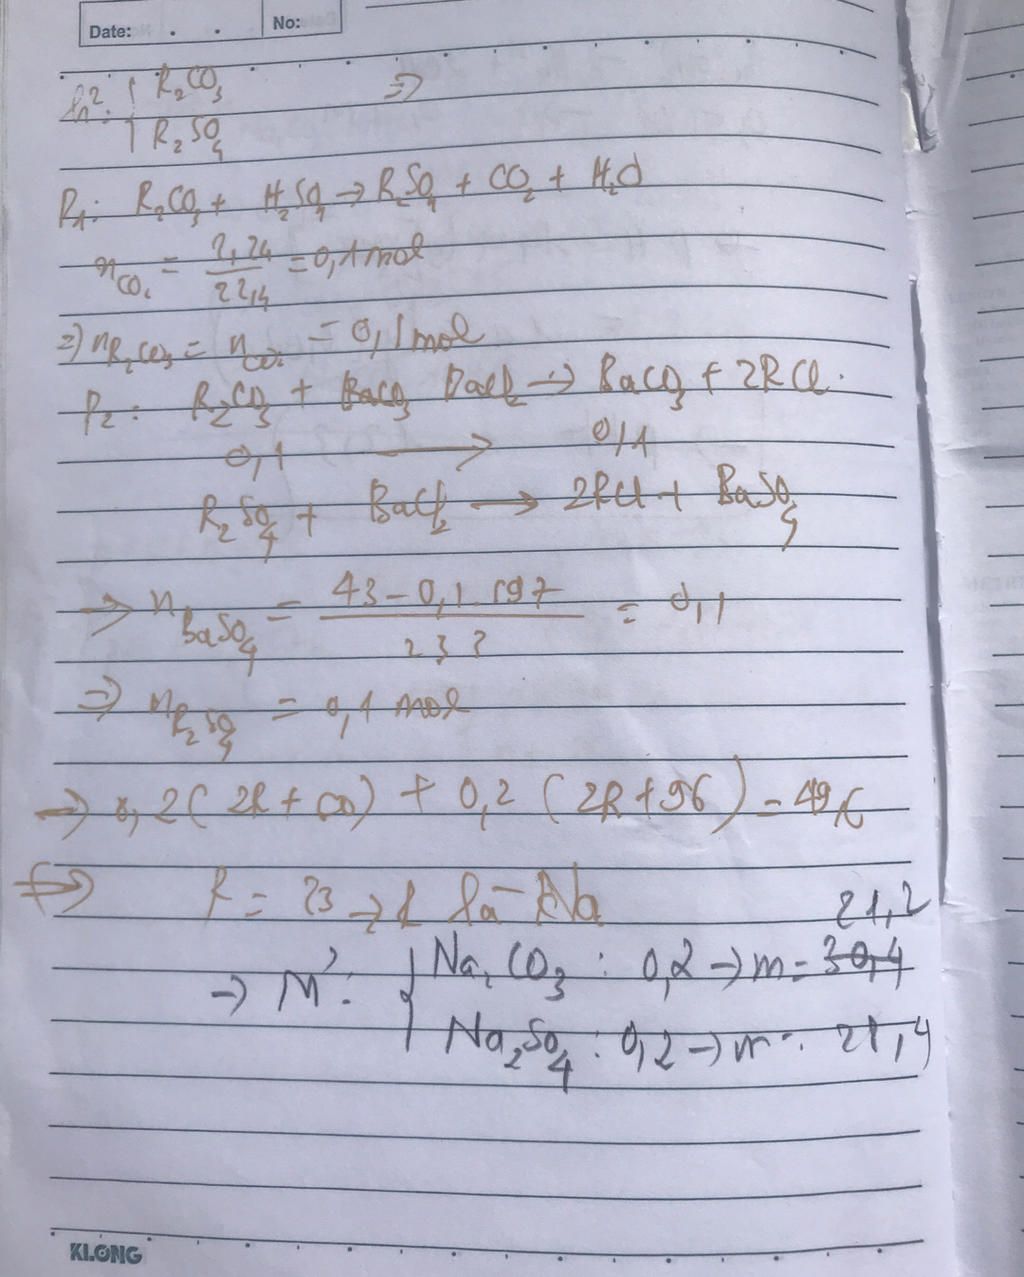 Date: . . No:
h²: { R₂CO₃ ⇒
R₂SO₄
P₁: R₂CO₃ + H₂SO₄ → R₂SO₄ + CO₂ + H₂O
n CO₂ = 2,24 / 22,4 = 0,1 mol
⇒ n R₂CO₃ = n CO₂ = 0,1 mol
P₂: R₂CO₃ + BaCO₃ BaCl₂ → BaCO₃ + 2RCl.
0,1 → 0,1
R₂SO₄ + BaCl₂ → 2RCl + BaSO₄
→ n BaSO₄ = 43 - 0,1.197 / 233 = 0,1
⇒ n R₂SO₄ = 0,1 mol
→ 0,2 (2R + 60) + 0,2 (2R + 96) = 49,6
⇔ R = 23 → R là Na
21,2
→ M': { Na₂CO₃ : 0,2 → m = 30,4
Na₂SO₄ : 0,2 → m = 28,4
KLONG